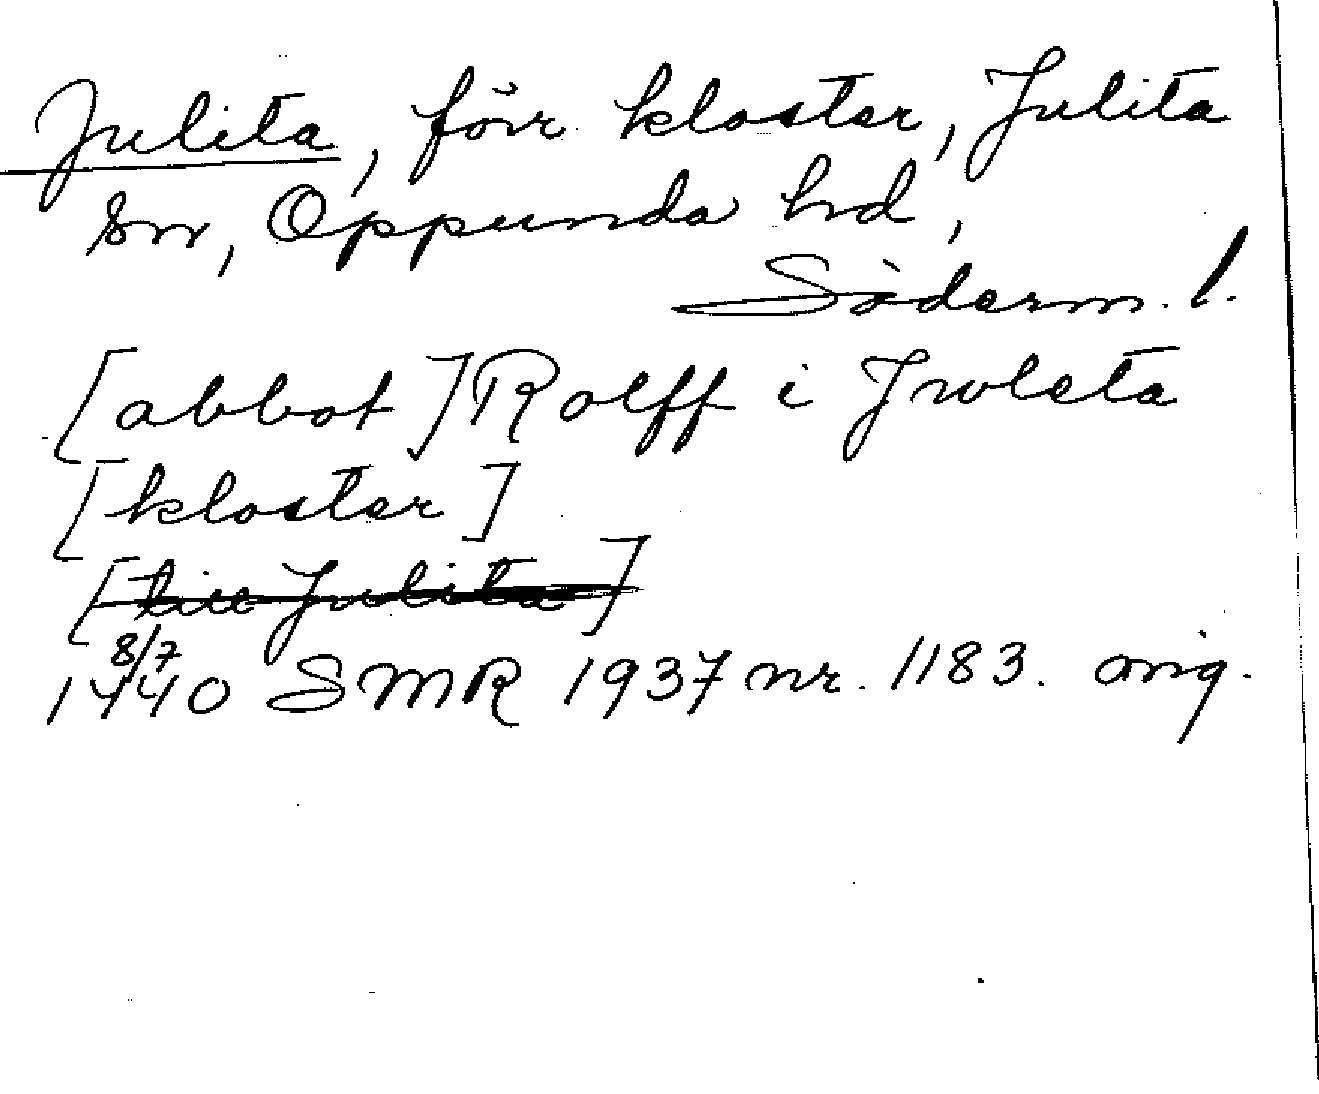 Julita, förr kloster, Julita
sn, Oppunda hd,
Söderm. l.
[abbot] Rolff i Jwleta
[kloster]
[till Julita]
8/7
1440 SMR 1937 nr. 1183. orig.